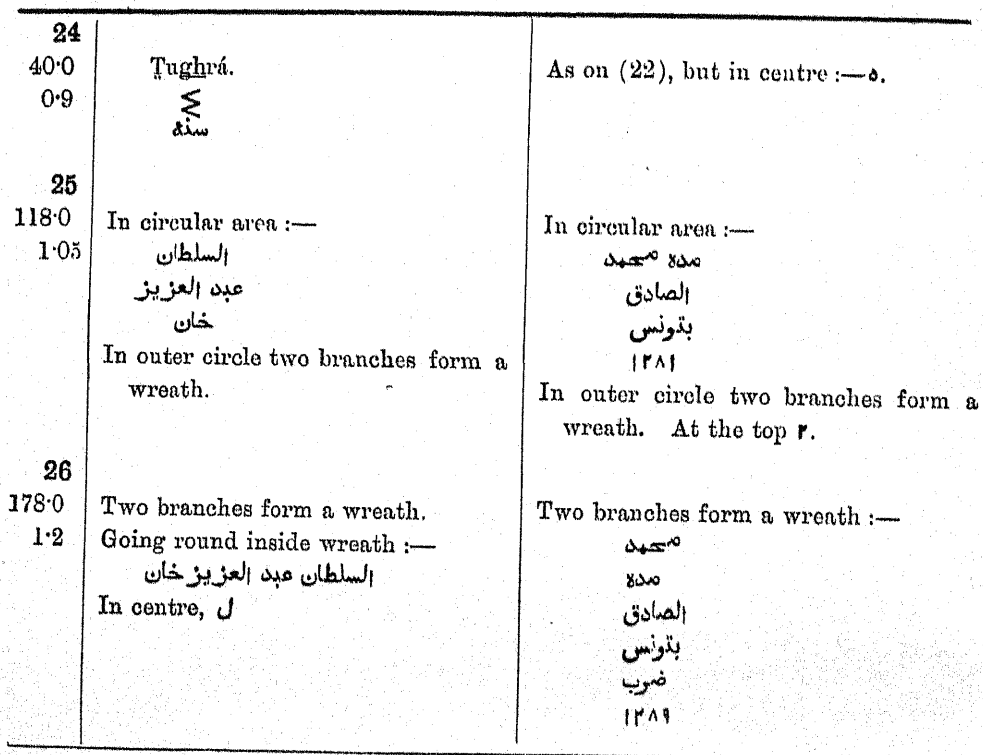 24
40·0
0·9
Ṯughrá.
سنة
As on (22), but in centre :—٥.
25
118·0
1·05
In circular area :—
السلطان
عبد العزيز
خان
In outer circle two branches form a
wreath.
In circular area :—
مدة محمد
الصادق
بتونس
١٢٨١
In outer circle two branches form a
wreath. At the top ٢.
26
178·0
1·2
Two branches form a wreath.
Going round inside wreath :—
السلطان عبد العزيز خان
In centre, ل
Two branches form a wreath :—
محمد
مدة
الصادق
بتونس
ضرب
١٢٨٩